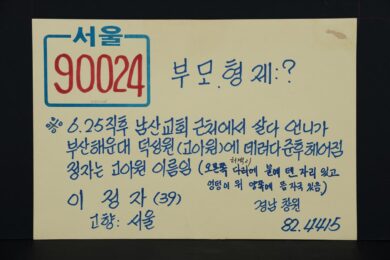 서울
90024
부모, 형제:?
※ 6.25직후 남산교회 근처에서 살다 언니가
부산해운대 덕성원(고아원)에 데려다준후헤어짐
정자는 고아원 이름임 (오른쪽 다리에 불에 덴 자리 있고
엉덩이 위 양쪽에 뜸자국 있음)
이 정 자 (39)
고향: 서울
경남 창원
82.4415